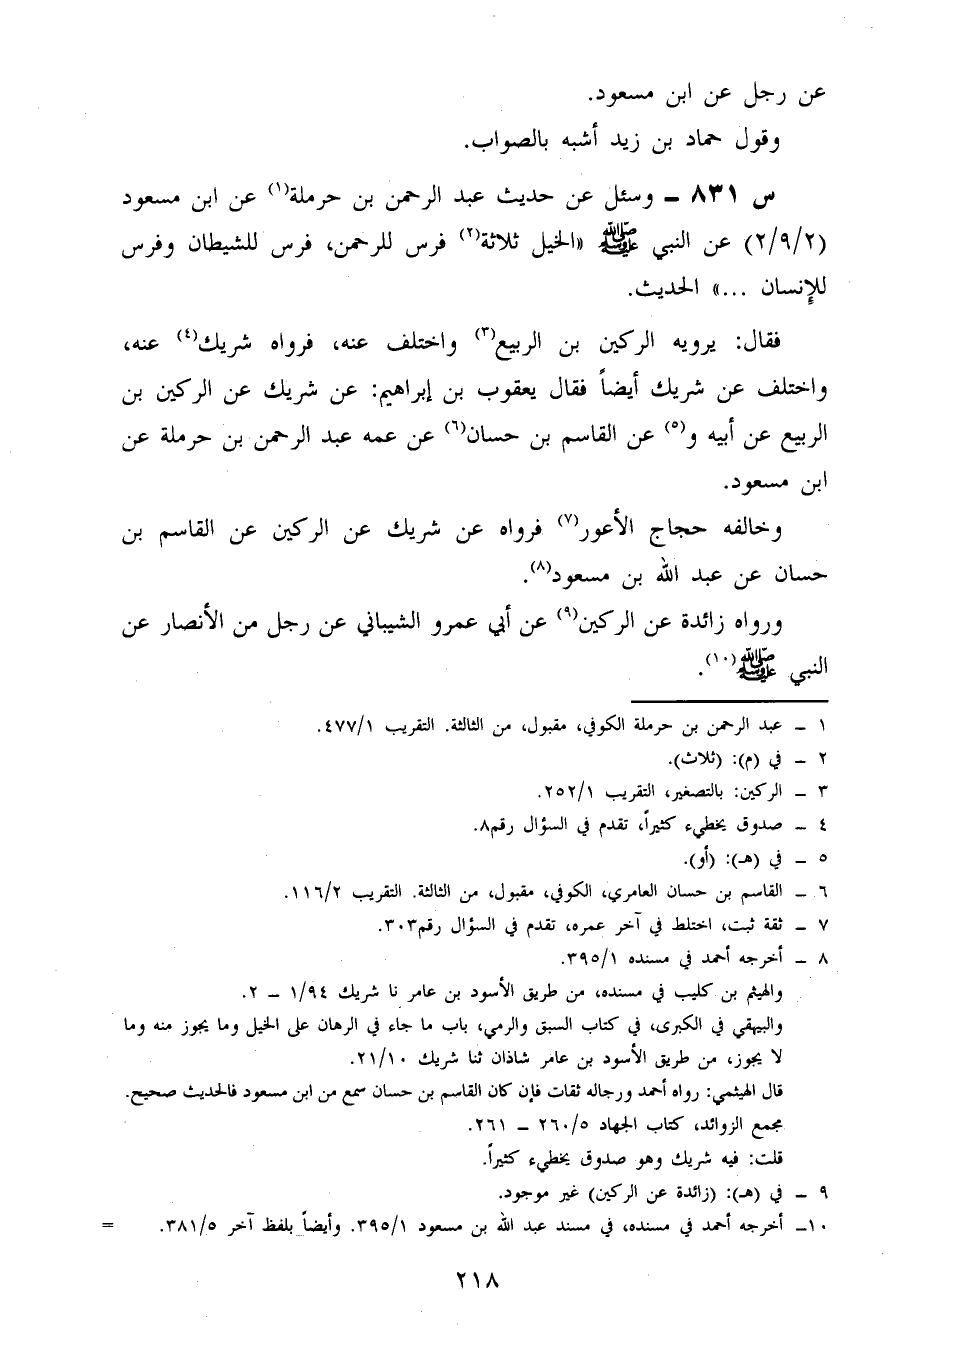 عن رجل عن ابن مسعود.
وقول حماد بن زيد أشبه بالصواب.
س ٨٣١ ـ وسئل عن حديث عبد الرحمن بن حرملة(١) عن ابن مسعود
(٢/٩/٢) عن النبي ﷺ «الخيل ثلاثة(٢) فرس للرحمن، فرس للشيطان وفرس
للإنسان ...» الحديث.
فقال: يرويه الركين بن الربيع(٣) واختلف عنه، فرواه شريك(٤) عنه،
واختلف عن شريك أيضاً فقال يعقوب بن إبراهيم: عن شريك عن الركين بن
الربيع عن أبيه و(٥) عن القاسم بن حسان(٦) عن عمه عبد الرحمن بن حرملة عن
ابن مسعود.
وخالفه حجاج الأعور(٧) فرواه عن شريك عن الركين عن القاسم بن
حسان عن عبد الله بن مسعود(٨).
ورواه زائدة عن الركين(٩) عن أبي عمرو الشيباني عن رجل من الأنصار عن
النبي ﷺ(١٠).
١ ـ عبد الرحمن بن حرملة الكوفي، مقبول، من الثالثة. التقريب ٤٧٧/١.
٢ ـ في (م): (ثلاث).
٣ ـ الركين: بالتصغير، التقريب ٢٥٢/١.
٤ ـ صدوق يخطيء كثيراً، تقدم في السؤال رقم٨.
٥ ـ في (هـ): (أو).
٦ ـ القاسم بن حسان العامري، الكوفي، مقبول، من الثالثة. التقريب ١١٦/٢.
٧ ـ ثقة ثبت، اختلط في آخر عمره، تقدم في السؤال رقم٣٠٣.
٨ ـ أخرجه أحمد في مسنده ٣٩٥/١.
والهيثم بن كليب في مسنده، من طريق الأسود بن عامر نا شريك ١/٩٤ ـ ٢.
والبيهقي في الكبرى، في كتاب السبق والرمي، باب ما جاء في الرهان على الخيل وما يجوز منه وما
لا يجوز، من طريق الأسود بن عامر شاذان ثنا شريك ٢١/١٠.
قال الهيثمي: رواه أحمد ورجاله ثقات فإن كان القاسم بن حسان سمع من ابن مسعود فالحديث صحيح.
مجمع الزوائد، كتاب الجهاد ٢٦٠/٥ ـ ٢٦١.
قلت: فيه شريك وهو صدوق يخطيء كثيراً.
٩ ـ في (هـ): (زائدة عن الركين) غير موجود.
١٠ـ أخرجه أحمد في مسنده، في مسند عبد الله بن مسعود ٣٩٥/١. وأيضاً بلفظ آخر ٣٨١/٥. =
٢١٨